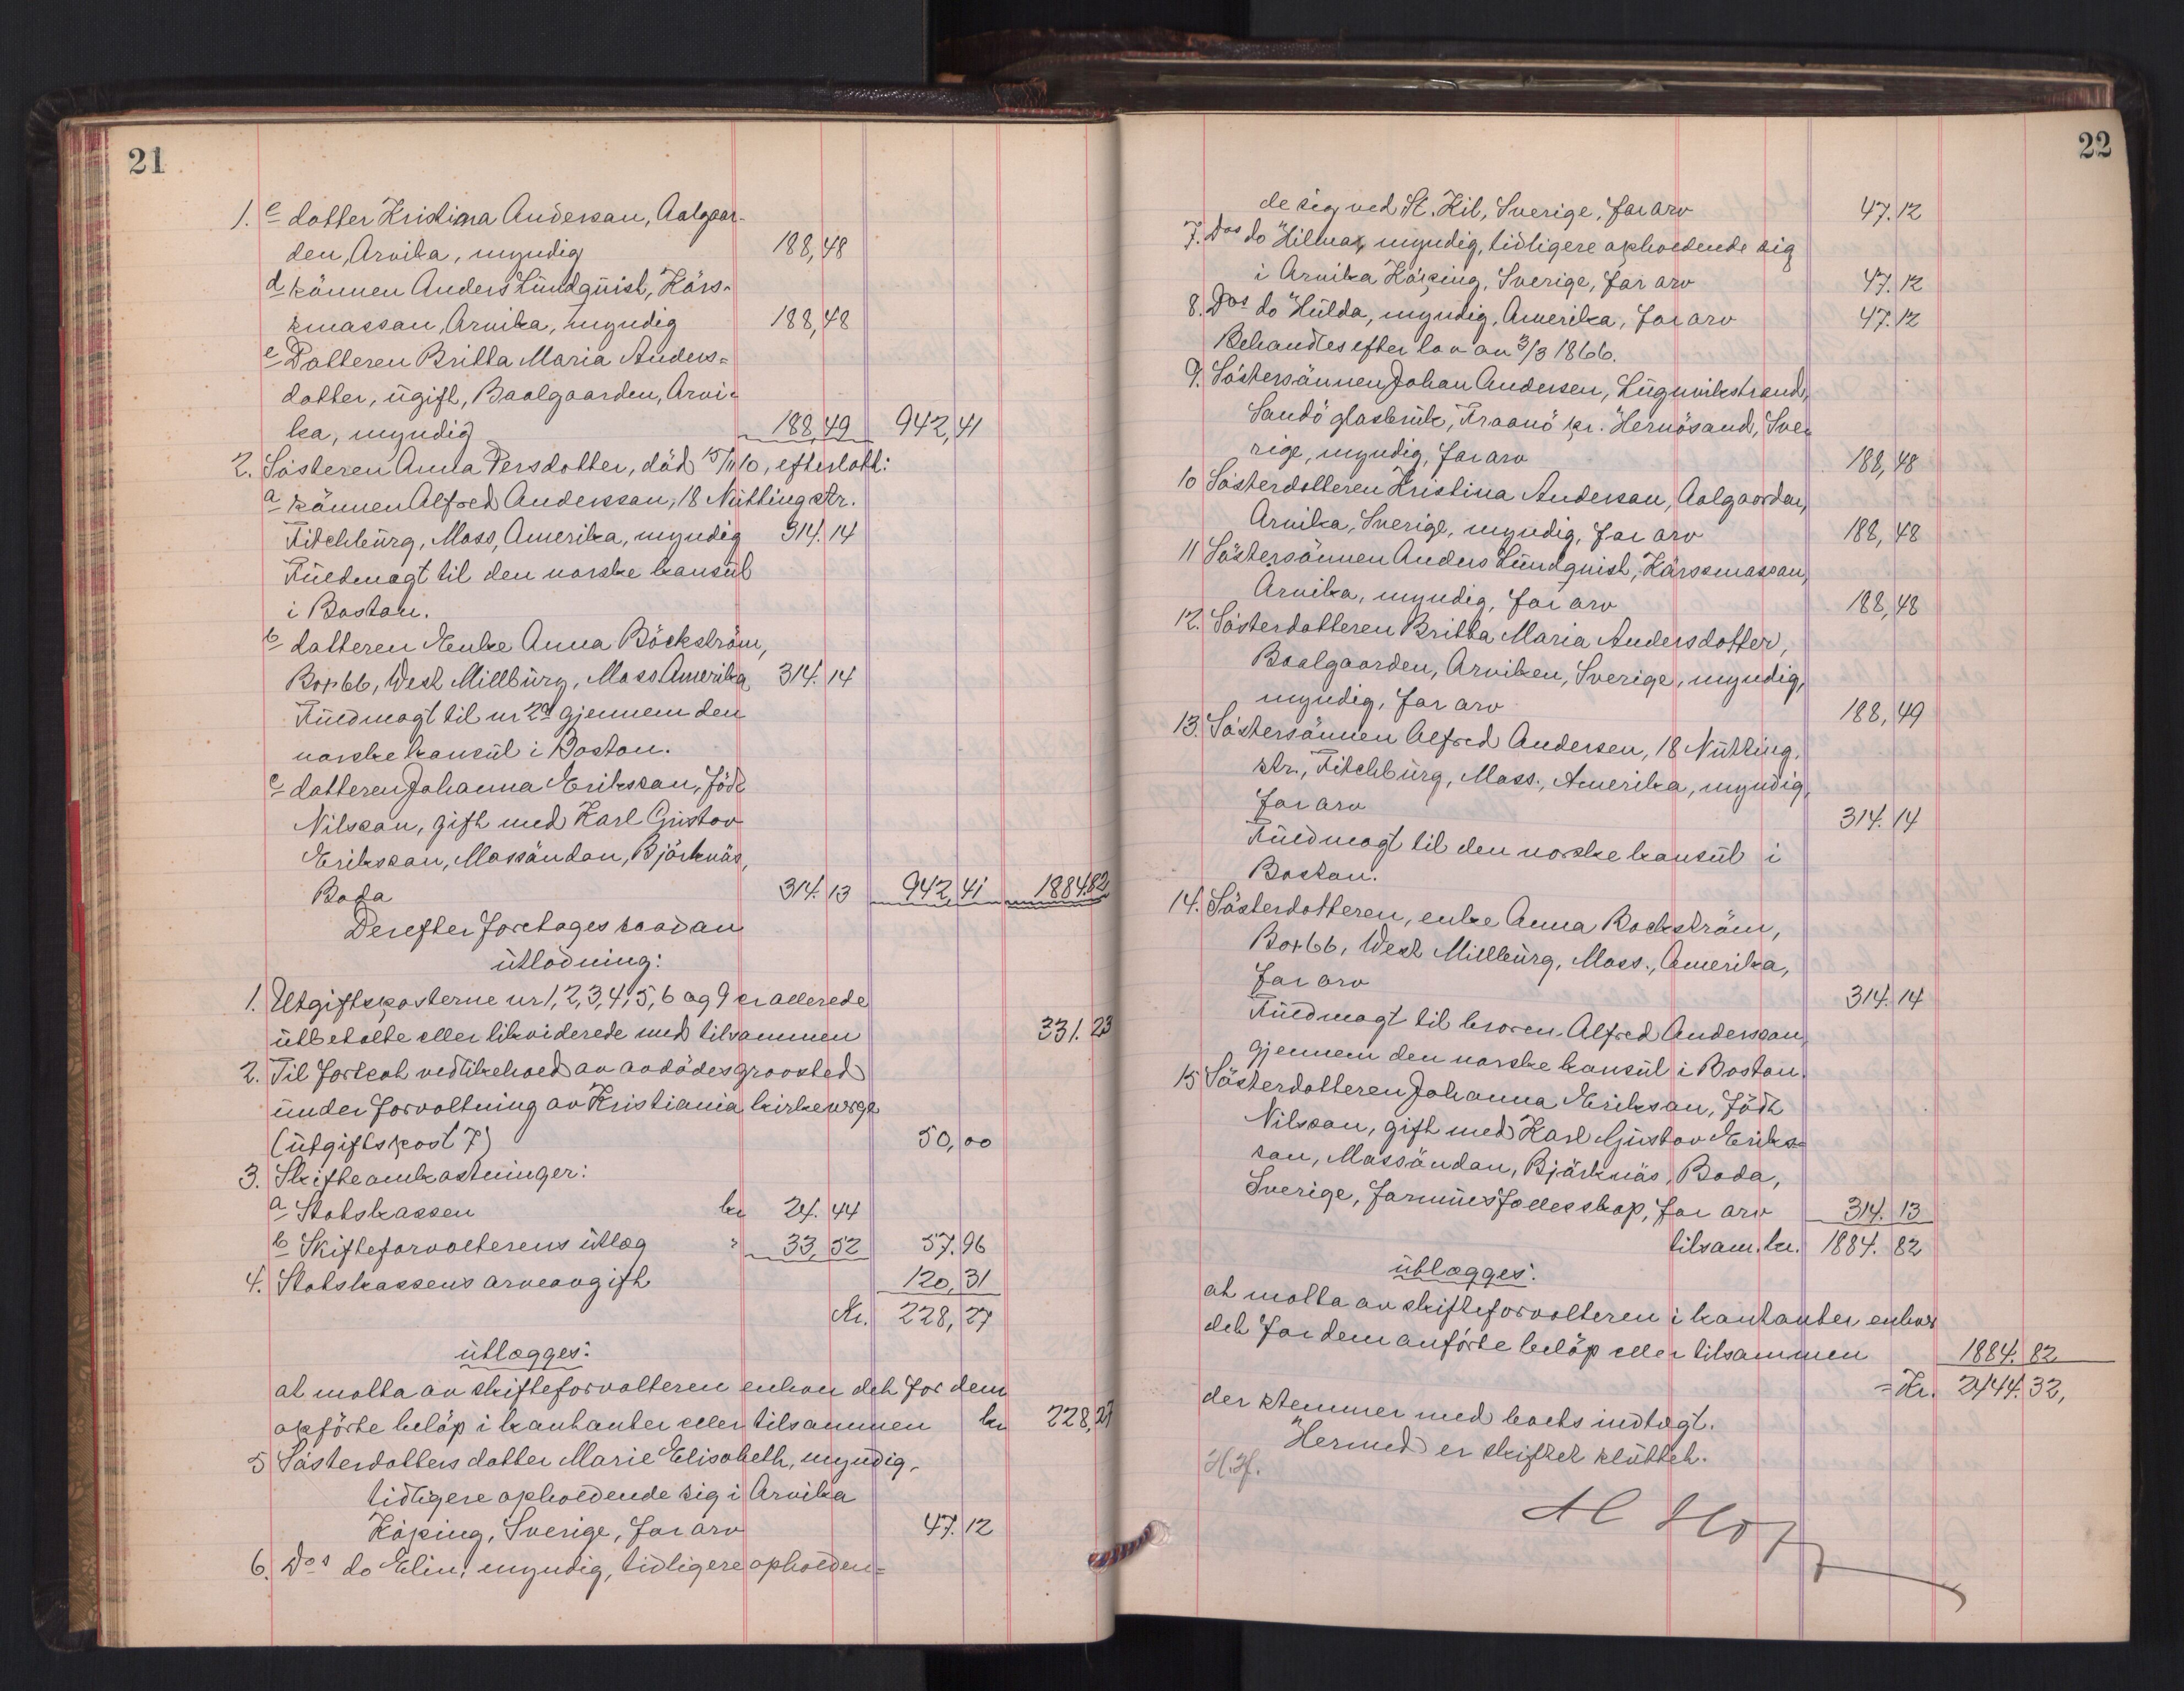 21
1. c dotter Kristina Anderson, Aalgaar-
den, Arvika, myndig 188,48
d sönnen Anders Lundquist, Kårs-
kmassan, Arvika, myndig 188,48
e Datteren Britta Maria Anders-
dotter, ugift, Baalgaarden, Arvi-
ka, myndig 188,49 942,41
2. Søsteren Anna Persdotter, död 15/11 10, efterlott:
a sönnen Alfred Andersson, 18 Nutting str.
Fitchburg, Mass, Amerika, myndig 314.14
Fuldmagt til den norske konsul
i Boston.
b datteren Enke Anna Böckström,
Box 66, West Millburg, Mass Amerika 314.14
Fuldmagt til nr 2a gjennem den
norske konsul i Boston.
c datteren Johanna Eriksson, född
Nilsson, gift med Karl Gustav
Eriksson, Mossändan, Björknäs,
Boda 314.13 942,41 1884.82
Derefter foretages saadan
utlodning:
1. Utgiftsposterne nr 1, 2, 3, 4, 5, 6 og 9 er allerede
utbetalte eller likviderede med tilsammen 331.23
2. Til fortsat vedlikehold av avdödes gravsted
under forvaltning av Kristiania kirkeverge
(utgiftspost 7) 50,00
3. Skifteomkostninger:
a Statskassen kr 24.44
b Skifteforvalterens utlæg " 33,52 57.96
4. Statskassens arveavgift 120,31
Kr. 228,27
utlægges:
at motta av skifteforvalteren enhver det for dem
opförte belöp i kontanter eller tilsammen kr 228,27
5 Søsterdatters datter Marie Elisabeth, myndig,
tidligere opholdende sig i Arvika
Köping, Sverige, far arv 47.12
6. Dos do Elin, myndig, tidligere opholden=
22
de sig ved St. Kil, Sverige, far arv 47.12
7. Dos do Hilma, myndig, tidligere opholdende sig
i Arvika Köping, Sverige, far arv 47.12
8. Dos do Hulda, myndig, Amerika, far arv 47.12
Behandles efter lov av 3/3 1866.
9. Söstersönnen Johan Andersen, Lugnvikstrand,
Sandö glasbruk, Fraanö pr. Hernösand, Sve-
rige, myndig, far arv 188,48
10 Søsterdatteren Kristina Anderson, Aalgaarden,
Arvika, Sverige, myndig, far arv 188,48
11 Söstersönnen Anders Lundquist, Kårssmassan,
Arvika, myndig, far arv 188,48
12. Søsterdatteren Britta Maria Andersdotter,
Baalgaarden, Arviken, Sverige, myndig,
myndig, far arv 188,49
13. Söstersönnen Alfred Andersen, 18 Nutting,
str., Fitchburg, Mass., Amerika, myndig,
far arv 314.14
Fuldmagt til den norske konsul i
Boston.
14. Søsterdatteren, enke Anna Bockström,
Box 66, West Millburg, Mass., Amerika,
far arv 314.14
Fuldmagt til broren Alfred Andersson,
gjennem den norske konsul i Boston.
15 Søsterdatteren Johanna Erikson, född
Nilsson, gift med Karl Gustav Eriks=
son, Mossändan, Björknäs, Boda,
Sverige, formuesfællesskap, far arv 314.13
tilsam. kr. 1884.82
utlægges:
at motta av skifteforvalteren i kontanter enhver
det for dem anförte belöp eller tilsammen 1884.82
= Kr. 2444.32,
der stemmer med boets indtægt.
Hermed er skiftet sluttet.
H.H.